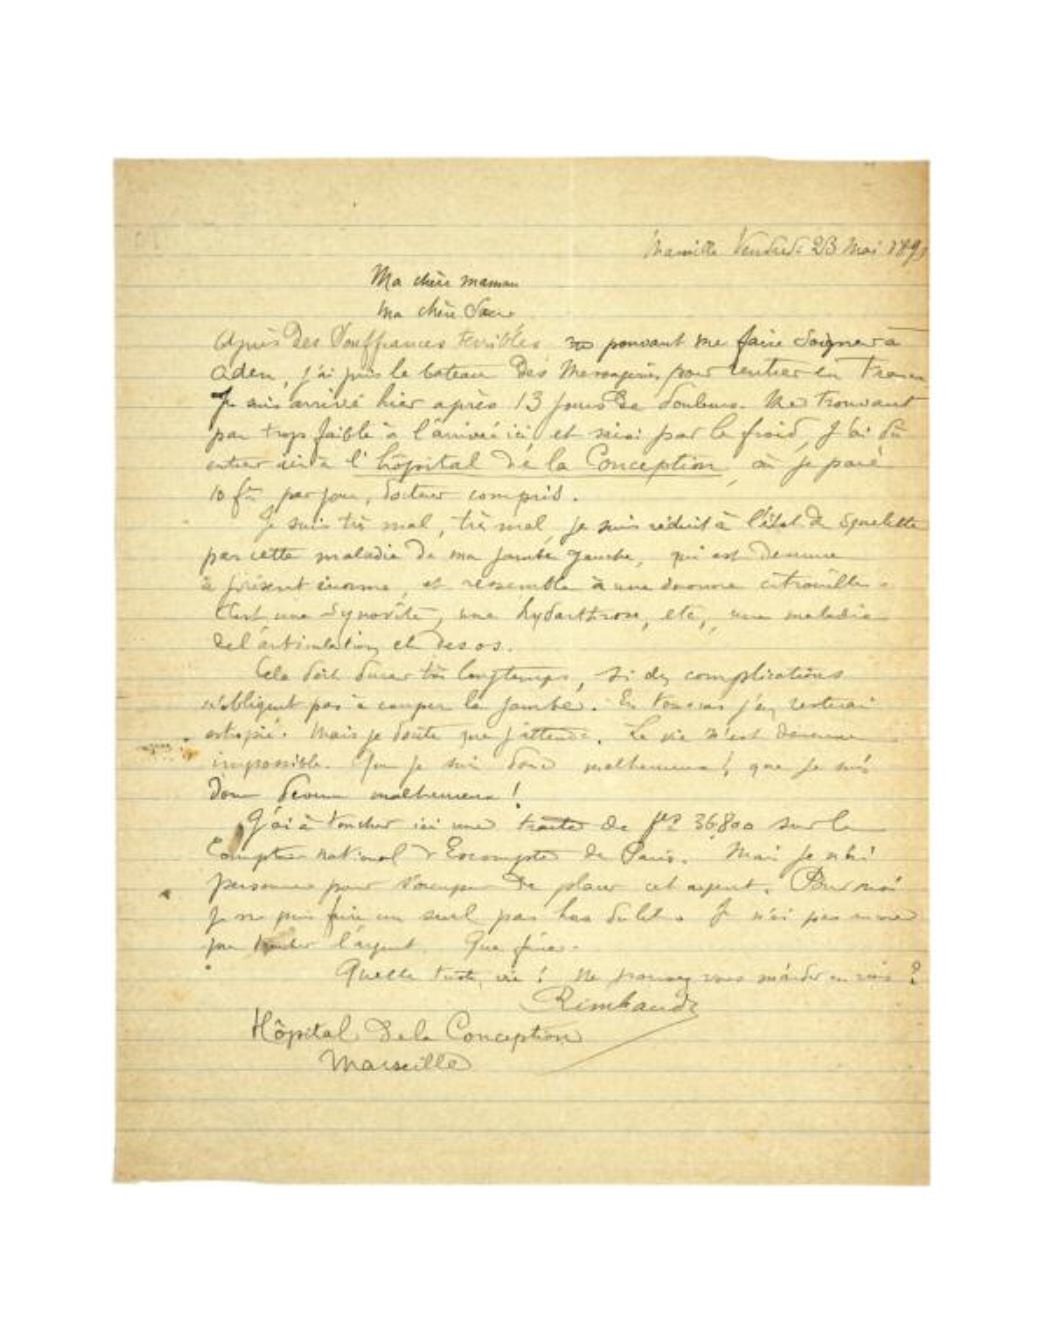 Marseille Vendredi 23 Mai 1891
Ma chère maman
Ma chère Sœur
Après des Souffrances terribles ne pouvant me faire Soigner à
Aden, j'ai pris le bateau Des Messageries pour rentrer en France
Je suis arrivé hier après 13 jours de douleurs. Me trouvant
par trop faible à l'arrivée ici, et saisi par le froid, j'ai dû
entrer ici à l'hôpital de la Conception, où je paie
10 fcs par jour, docteur compris.
Je suis très mal, très mal, je suis réduit à l'état de Squelette
par cette maladie de ma jambe gauche, qui est devenue
à présent énorme, et ressemble à une énorme citrouille.
C'est une Synovite, une hydarthrose, etc, une maladie
de l'articulation et des os.
Cela doit durer très longtemps, si des complications
n'obligent pas à couper la jambe. En tous cas j'en resterai
estropié. Mais je doute que j'attende. La vie m'est devenue
impossible. Que je suis donc malheureux! que je suis
donc devenu malheureux!
J'ai à toucher ici une traite de fcs 36,800 sur le
Comptoir national d'Escompte de Paris. Mais je n'ai
personne pour s'occuper de placer cet argent. Pour moi
je ne puis faire un seul pas hors du lit. Je n'ai pas encore
pu toucher l'argent. Que faire.
Quelle triste vie! Ne pouvez vous m'aider en rien?
Rimbaud
Hôpital de la Conception
Marseille